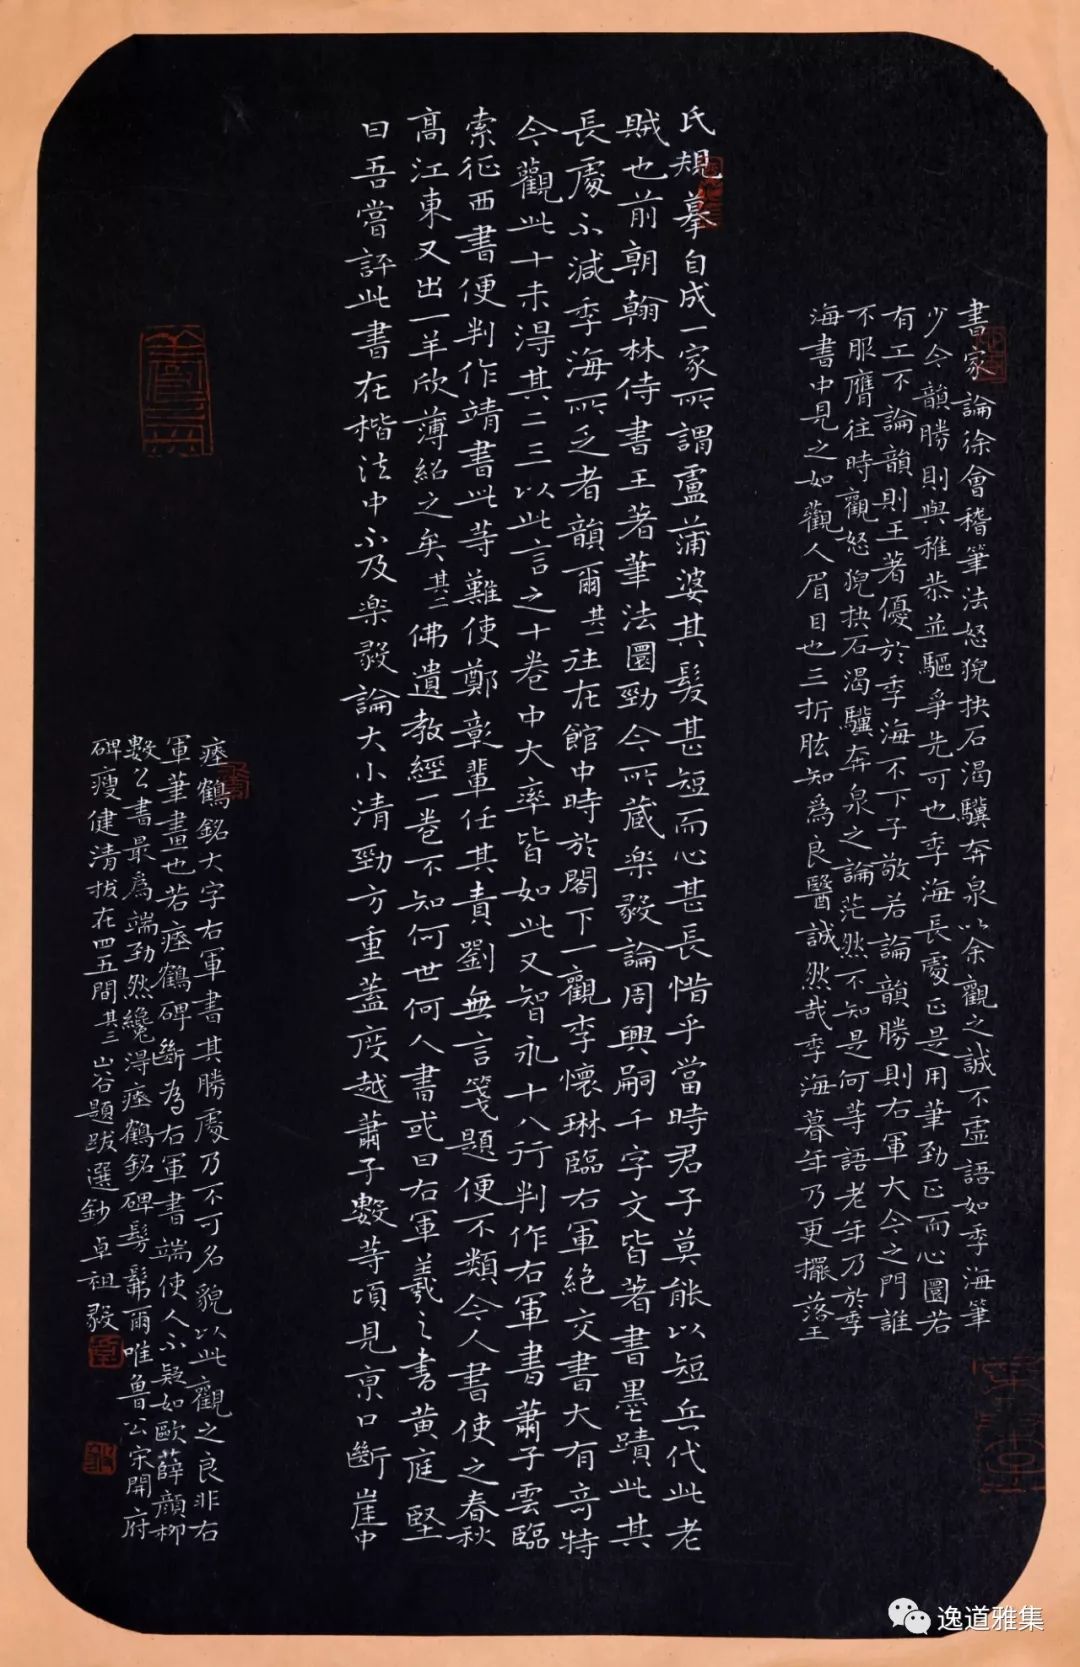 書家論徐會稽筆法怒猊抉石渴驥奔泉以余觀之誠不虛語如季海筆
少令韻勝則與稚恭並驅爭先可也季海長處正是用筆勁正而心圓若
有工不論韻則王著優於季海不下子敬若論韻勝則右軍大令之門誰
不服膺往時觀怒猊抉石渴驥奔泉之論茫然不知是何等語老年乃於季
海書中見之如觀人眉目也三折肱知為良醫誠然哉季海暮年乃更擺落王
氏規摹自成一家所謂盧蒲婆其髮甚短而心甚長惜乎當時君子莫能以短兵代此老
賊也前朝翰林侍書王著筆法圜勁今所藏楽毅論周興嗣千字文皆著書墨蹟此其
長處不減季海所乏者韻爾其一往在館中時於閣下一觀李懷琳臨右軍絕交書大有奇特
今觀此十未得其二三以此言之十卷中大率皆如此又智永十八行判作右軍書蕭子雲臨
索征西書便判作靖書此等難使鄭彰輩任其責劉無言箋題便不類今人書使之春秋
高江東又出一羊欣薄紹之矣其二佛遺教經一卷不知何世何人書或曰右軍羲之書黄庭堅
曰吾嘗評此書在楷法中不及楽毅論大小清勁方重蓋度越蕭子數等頃見京口斷崖中
瘞鶴銘大字右軍書其勝處乃不可名貌以此觀之良非右
軍筆畫也若瘞鶴碑斷為右軍書端使人不疑如歐薛顏柳
數公書最為端勁然纔得瘞鶴銘碑髣髴爾唯魯公宋開府
碑瘦健清拔在四五間其三山谷題跋選鈔卓祖毅
逸道雅集